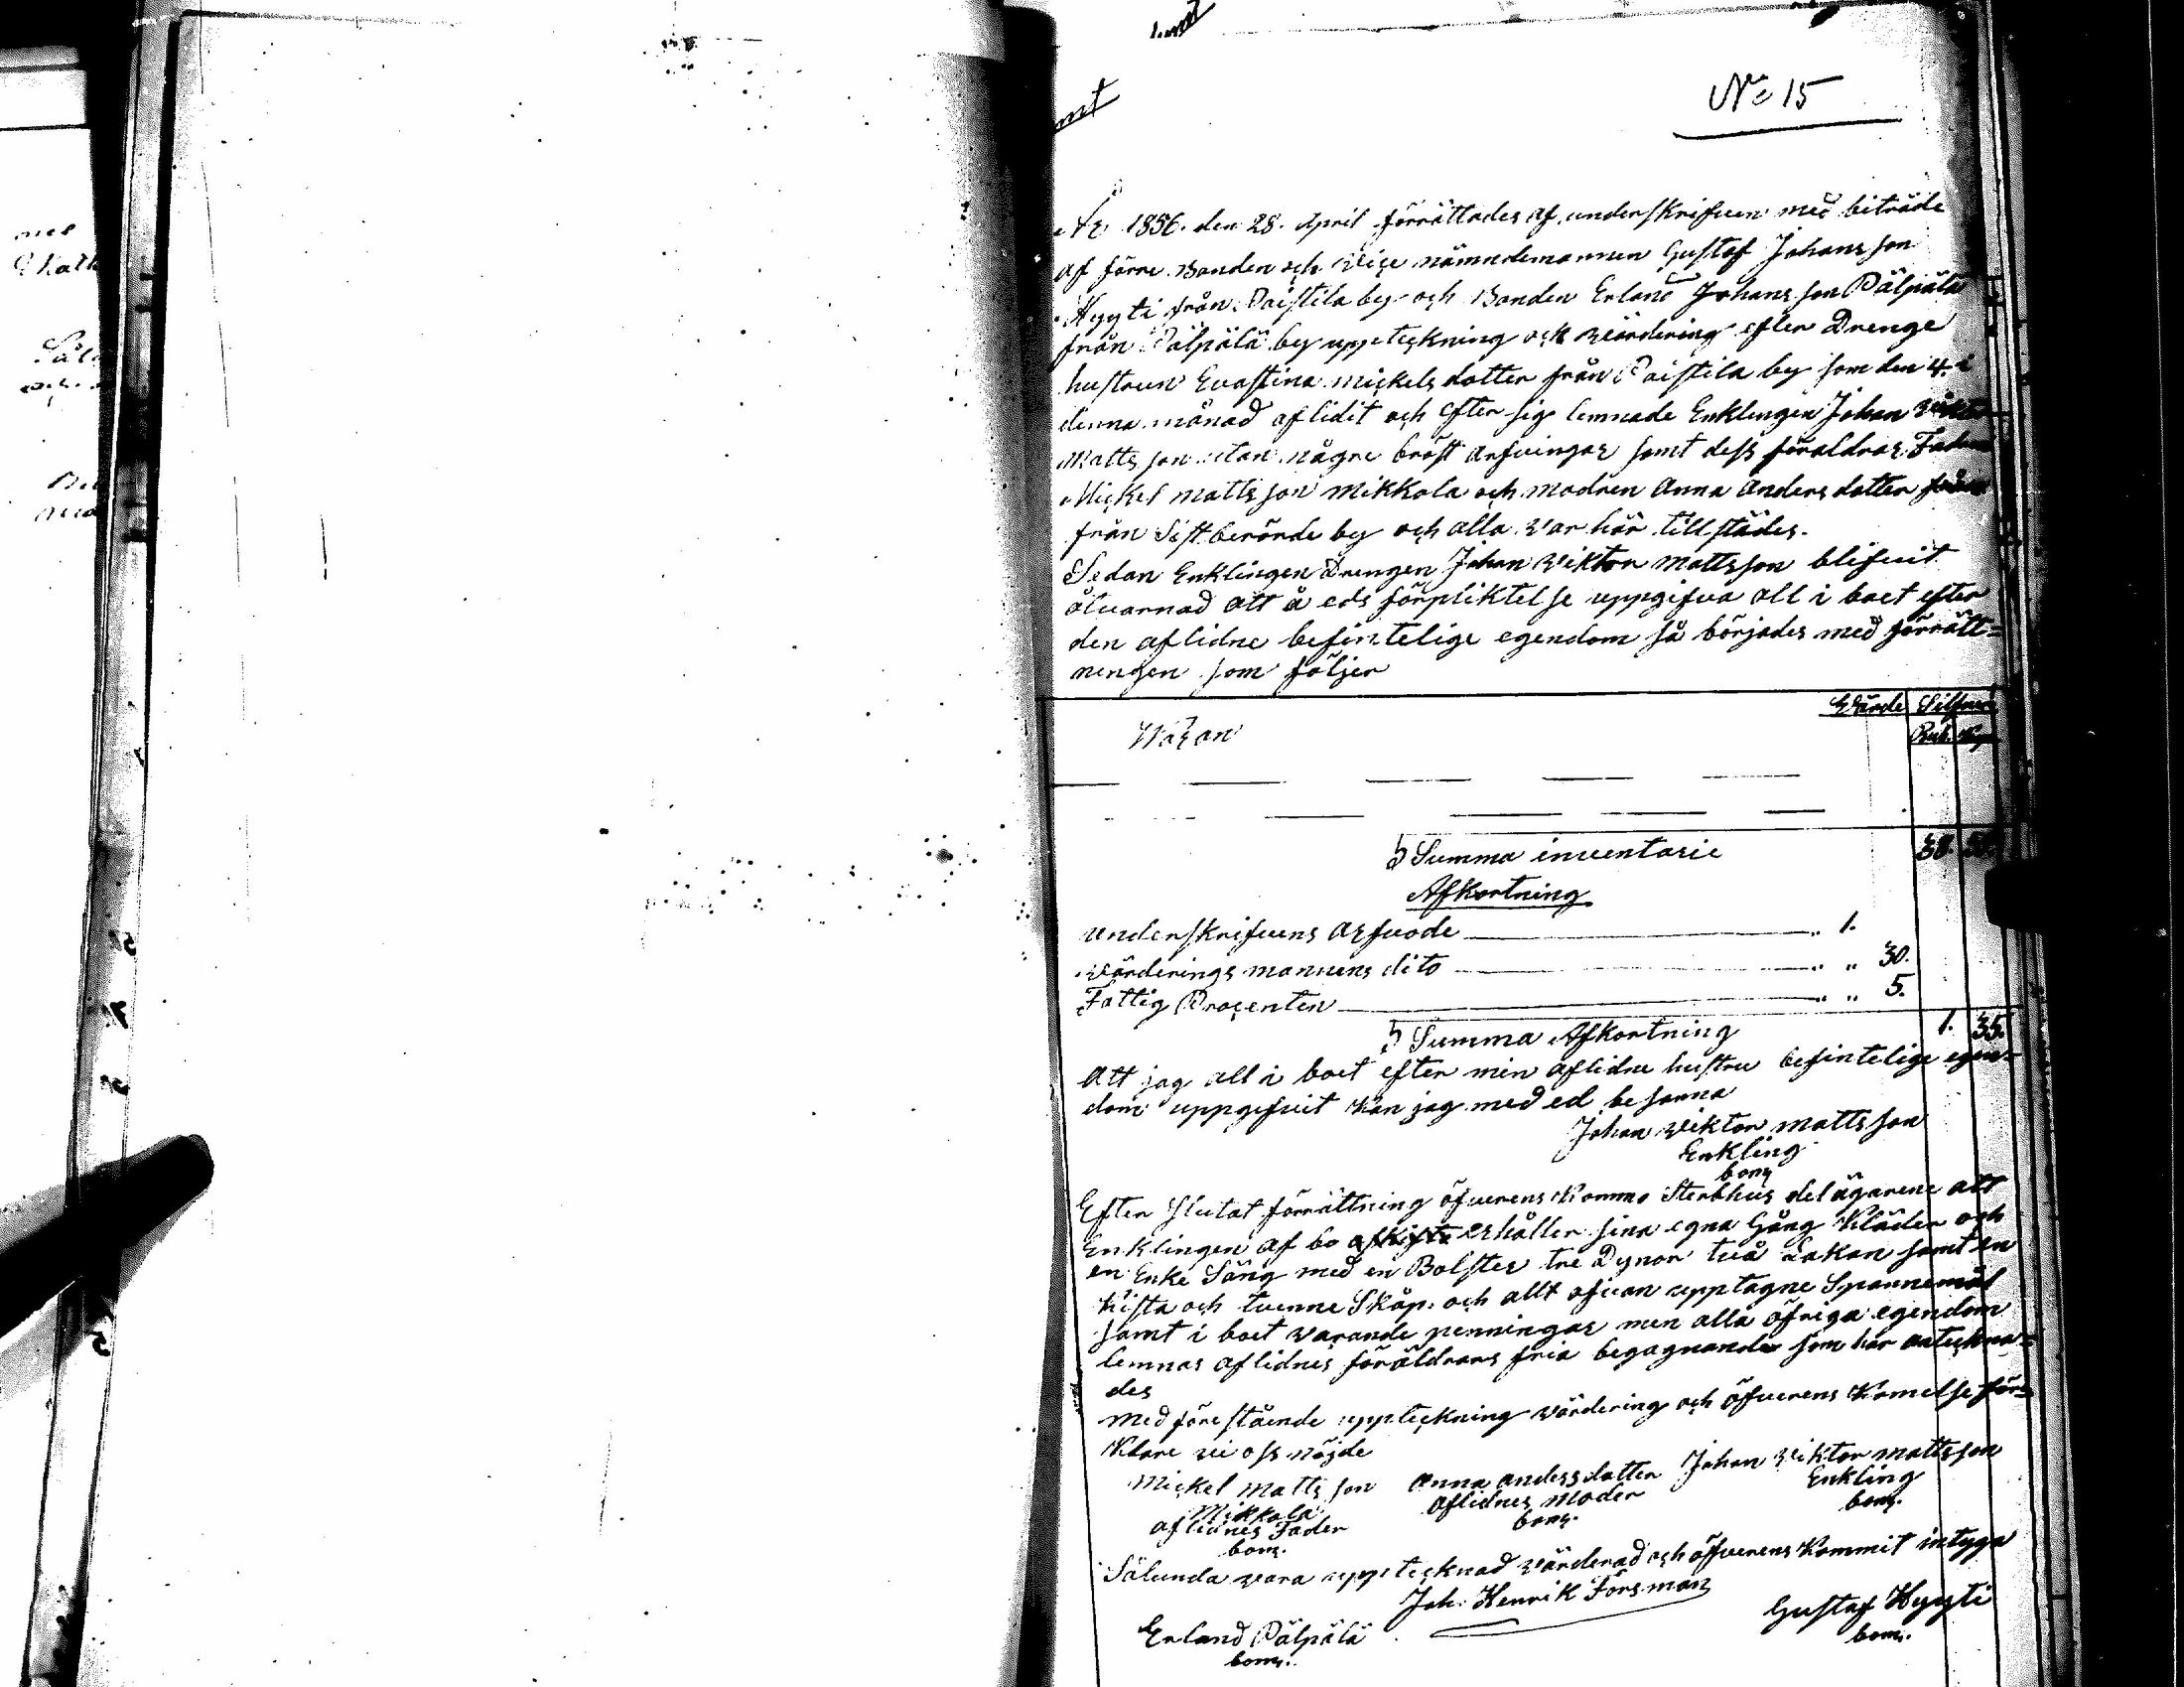 No 15
År 1856. den 28. April förrättades af underskrifven med biträde
af förre Bonden och Vice nämndemannen Gustaf Johansson
Hyyti från Paistila by och Bonden Erland Johansson Pälpälä
från Pälpälä by uppteckning och värdering efter Drenge
hustrun Evastina Mickelsdotter från Paistila by som den 4. i
denna månad aflidit och efter sig lemnade Enklingen Johan Viktor
Mattsson utan några bröst arfvingar samt dess föräldrar Fadren
Mickel Mattsson Mikkola och modren Anna Andersdotter
från Sistberörde by och alla var här tillstädes.
Sedan Enklingen Drengen Johan Viktor Mattsson blifvit
alvarnad att å eds förpliktelse uppgifva all i boet efter
den aflidne befintelige egendom så börjades med förrätt=
ningen som följer
Värde Silfver
Rub. Kop
Summa inventarie 38.
Afkortning
underskrifvens arfvode 1.
värderings mannens dito " 30.
Fattig Procenten " 5.
Summa Afkortning 1. 35.
Att jag all i boet efter min aflidne hustru befintelige egen=
dom uppgifvit kan jag med ed besanna
Johan Viktor Mattsson
Enkling
bom
Efter slutat förrättning öfverens kommo Sterbhus delägarene att
Enklingen af bo erhåller sina egna Gång Kläder och
en Enke Säng med en Bolster tre Dynor två Lakan samt en
kista och tvenne Skåp. och allt ofvan upptagne Spannemål
samt i boet varande penningar men alla öfriga egendom
lemnas aflidnes föräldrars fria begagnande som här anteckna=
des
med förestående uppteckning värdering och öfverens Komelse för=
klare vi oss nöjde
Mickel Mattsson Anna Andersdotter Johan Viktor Mattsson
Mikkola aflidnes Moder Enkling
aflidnes Fader bom. bom.
bom.
Sålunda vara upptecknad värderad och öfverens Kommit intyga
Joh. Henrik Forsman
Erland Pälpälä Gustaf Hyyti
bom. bom.